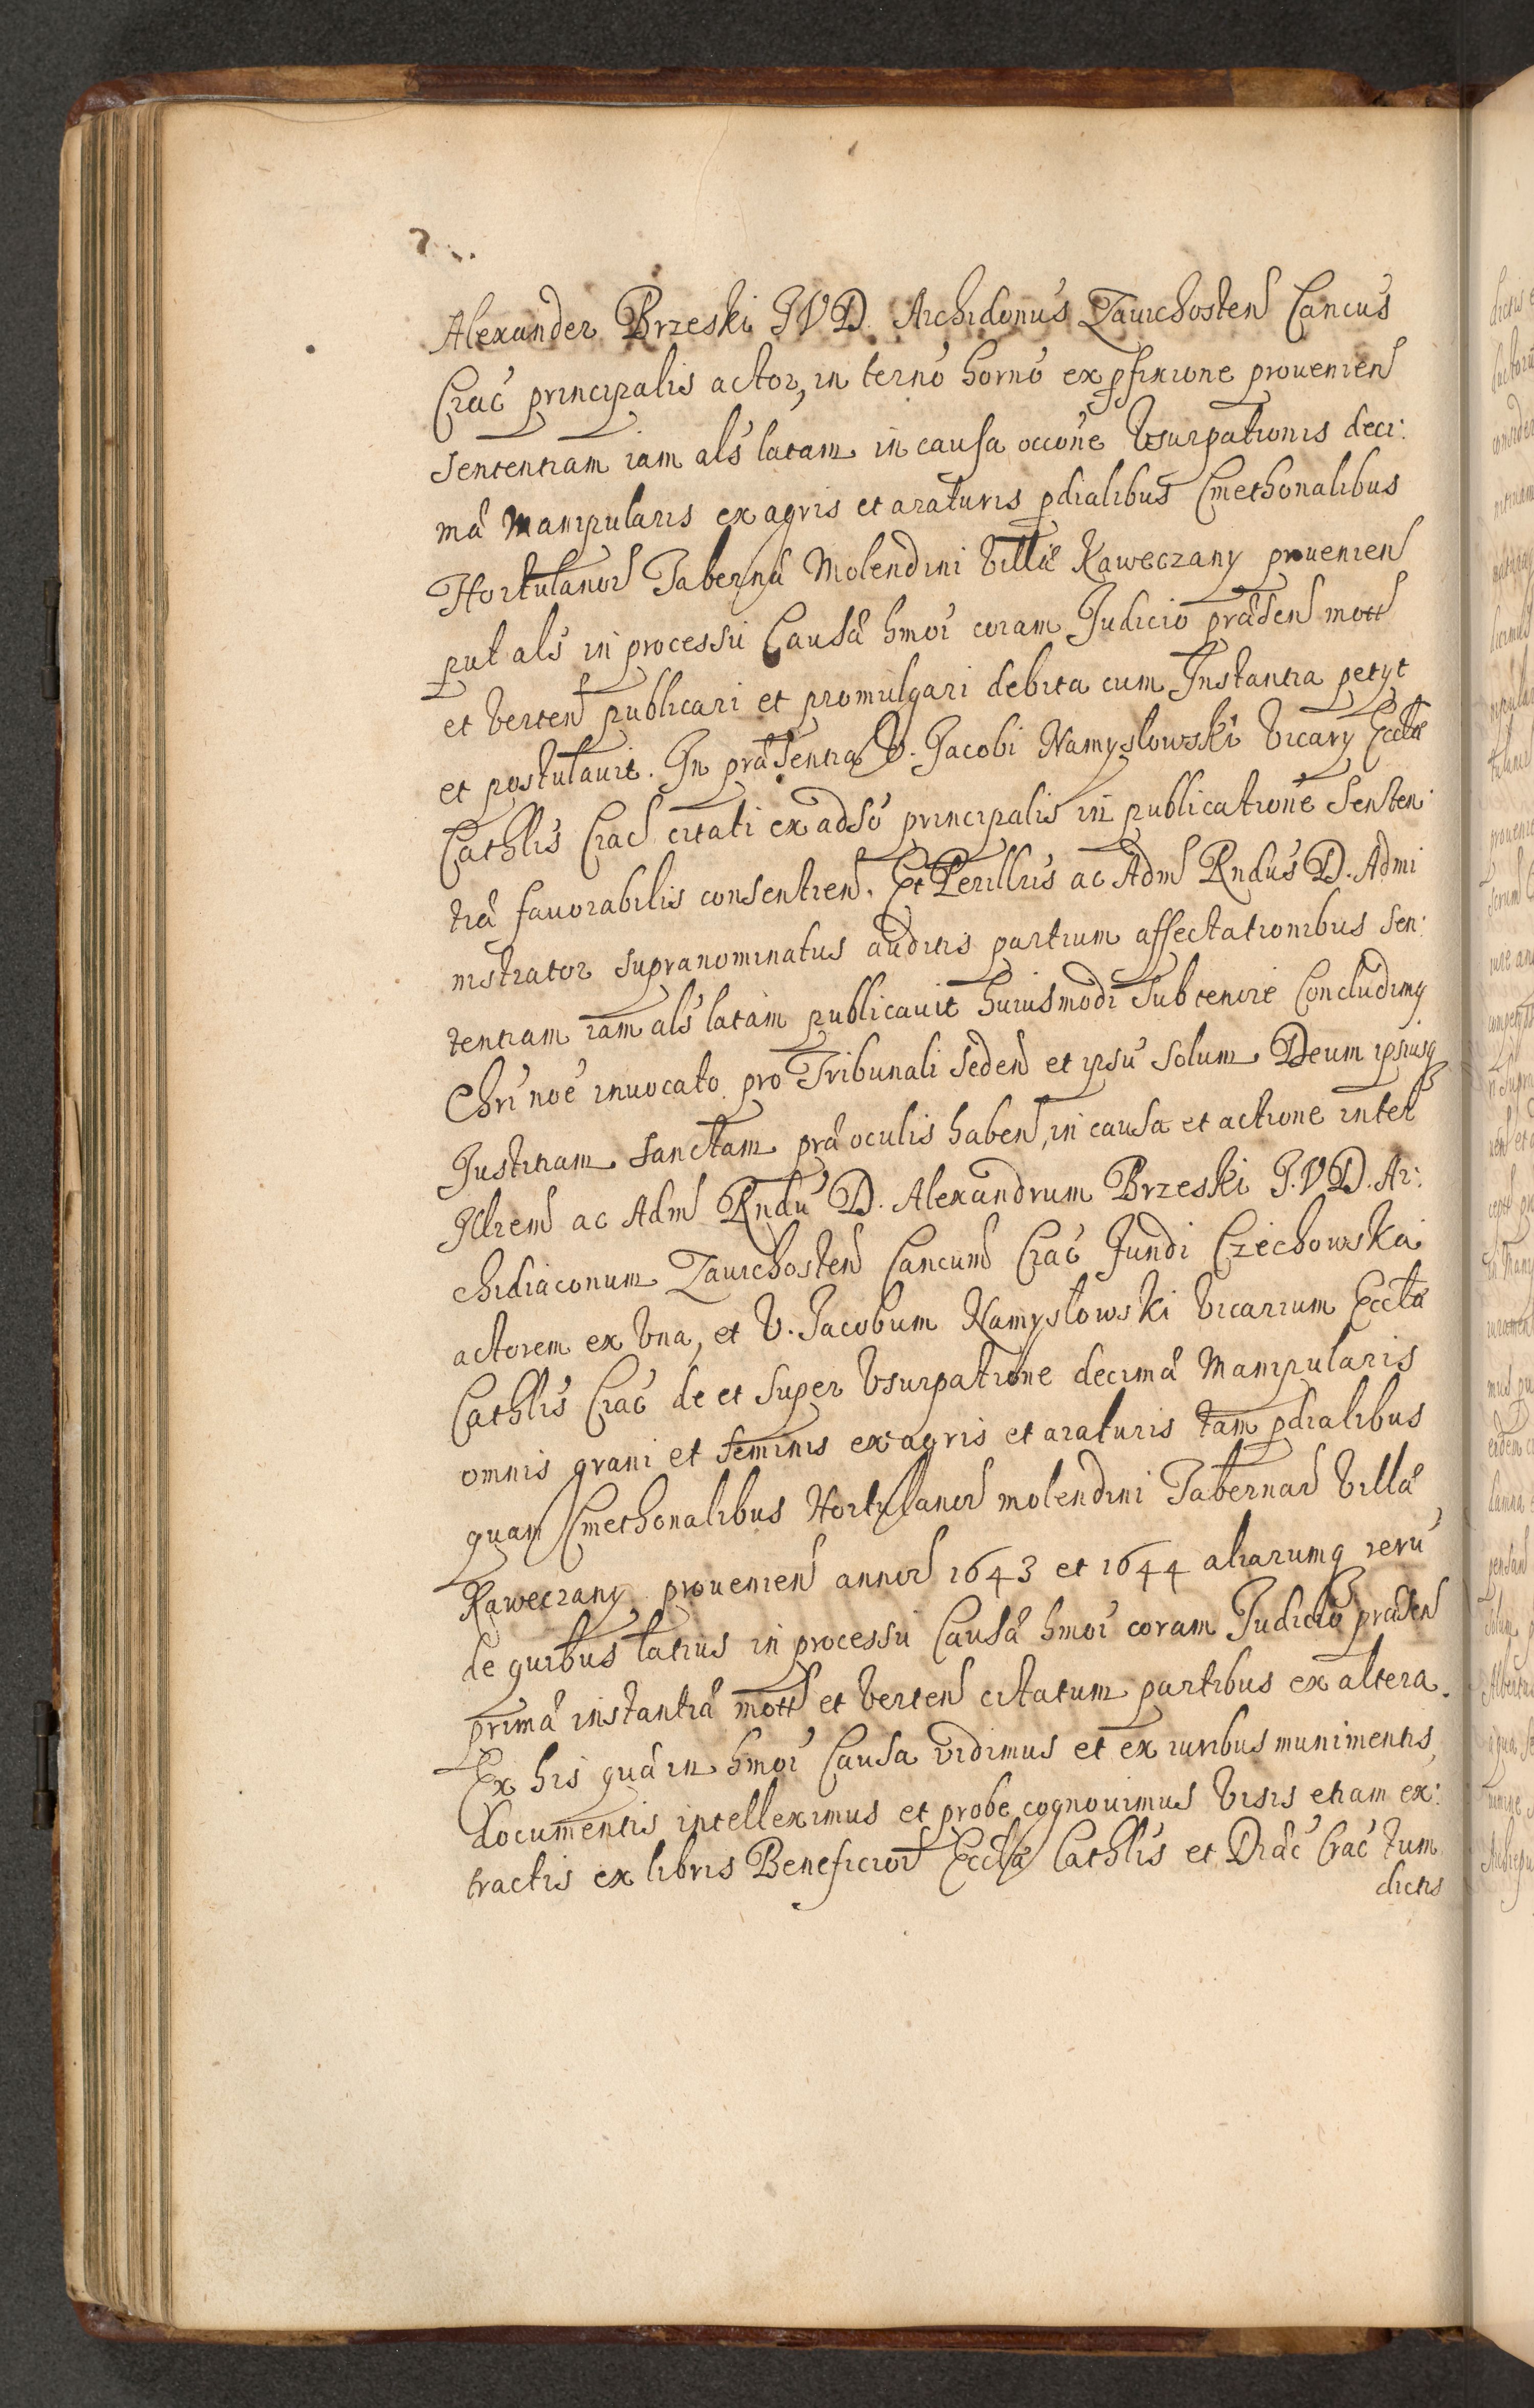 Alexander Brzeski JVD. Archidonus Zawichosten Cancus
Crac principalis actor, in terno horno ex pfixione prouenien
Sententiam iam als latam in causa occone Vsurpationis deci:
mæ Manipularis ex agris et araturis pdialibus Cmethonalibus
Hortulanor Tabernæ Molendini Villæ Kaweczany prouenien
put als in processu Causæ hmoi coram Judicio præsen mott
et verten publicari et promulgari debita cum Instantia petyt
et postulauit. In præsentia V. Jacobi Namyslowski Vicary Eccłæ
Cathlis Crac citati ex adso principalis in publicatione Senten:
tiæ fauorabilis consentien. Et Perillris ac Adm Rndus D. Admi
nistrator supranominatus auditis partium affectationibus Sen:
tentiam iam als latam publicauit huiusmodi sub tenore Concludimq
Chri noe inuocato pro Tribunali seden et ipsu solum Deum ipsiusq
Justitiam sanctam præ oculis haben, in causa et actione inter
Illrem ac Adm Rndu D. Alexandrum Brzeski J.V.D. Ar:
chidiaconum Zawichosten Cancum Crac Fundi Czechowska
actorem ex Vna, et V. Jacobum Namysłowski Vicarium Eccłæ
Cathlis Crac de et super Vsurpatione decimæ Manipularis
omnis grani et seminis ex agris et araturis tam pdialibus
quam Cmethonalibus Hortulanor molendini Tabernar Villæ
Kaweczany prouenien annor 1643 et 1644 aliarumq reru
de quibus latius in processu Causæ hmoi coram Judicio præsen
primæ instantiæ mott et verten citatum partibus ex altera.
Ex his quæ in hmoi Causa vidimus et ex iuribus munimentis
documentis intelleximus et probe cognouimus Visis etiam ex:
tractis ex libris Beneficior Eccłæ Cathlis et Diæc Crac tum
dictis